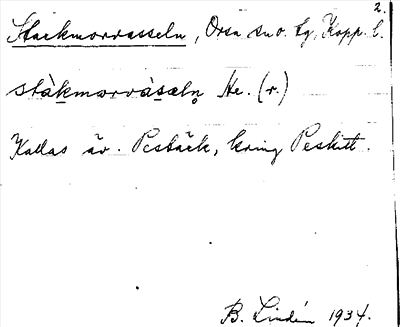 2.
Stackmorvasseln, Orsa sn o. tg, Kopp. l.
stàkmorvásæln He. (r.)
Kallas äv. Pesbäck, kring Peskitt.
B. Lindén 1934.